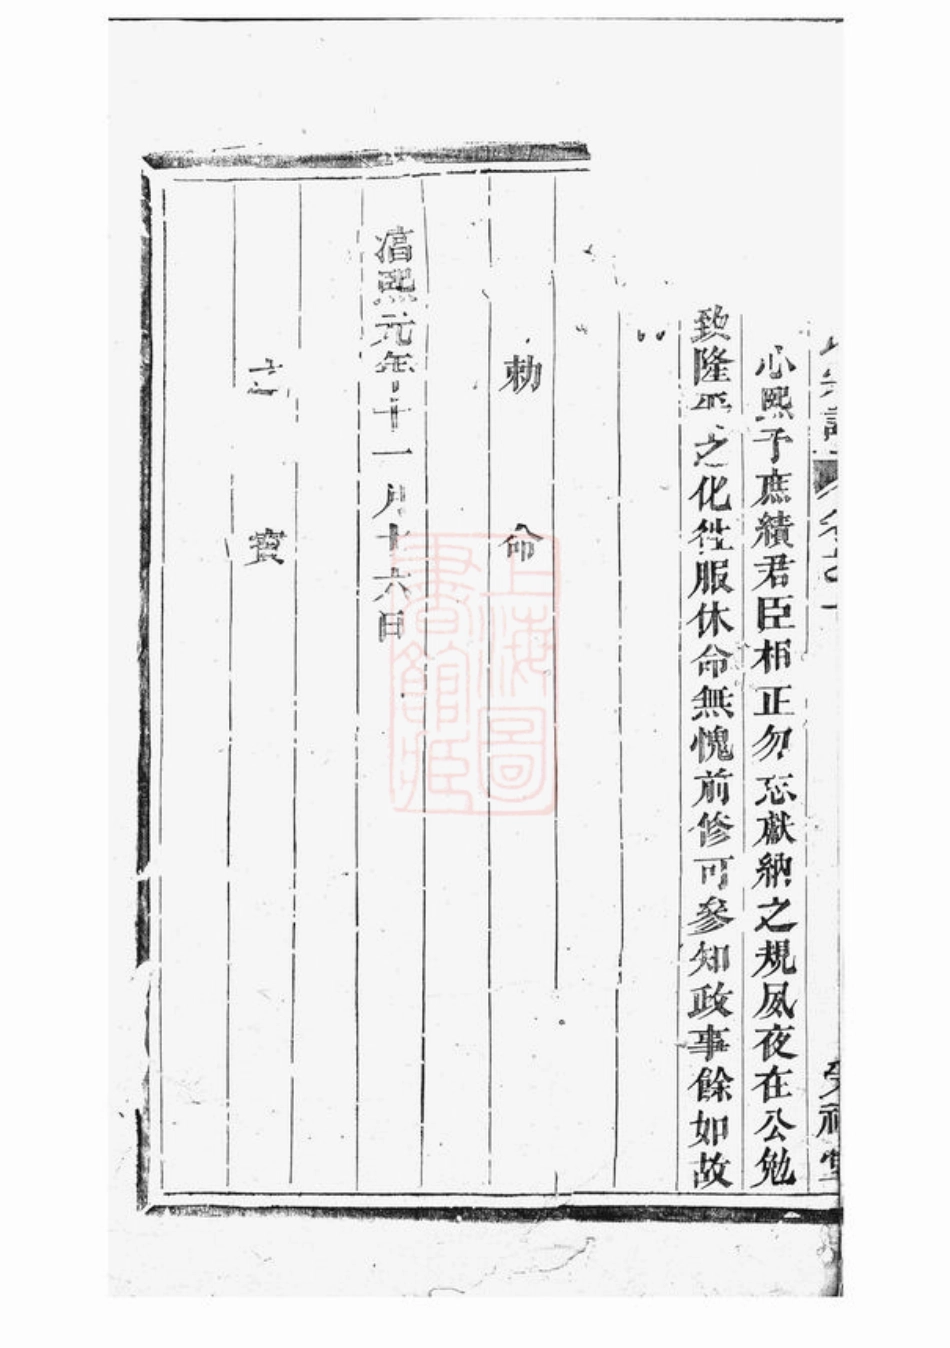 心熙予庶績君臣相正勿忘獻納之規夙夜在公勉
致隆平之化徃服休命無愧前修可參知政事餘如故
勅 命
熙元年十一月十六日
之 寳
上海圖書館藏